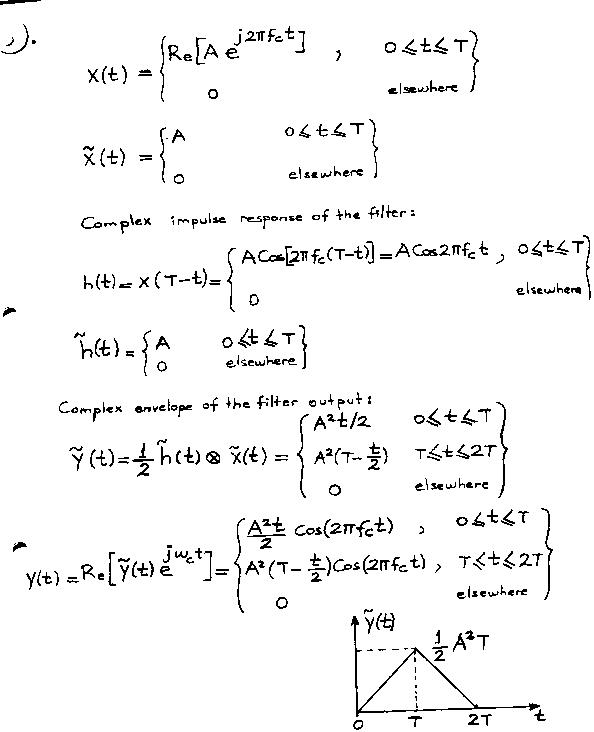 1).
x(t) = { Re[A e^{j2πf_c t}] , 0 ≤ t ≤ T
0 elsewhere }
x̃(t) = { A 0 ≤ t ≤ T
0 elsewhere }
Complex impulse response of the filter:
h(t) = x(T-t) = { A Cos[2πf_c(T-t)] = A Cos2πf_c t , 0 ≤ t ≤ T
0 elsewhere }
h̃(t) = { A 0 ≤ t ≤ T
0 elsewhere }
Complex envelope of the filter output:
ỹ(t) = 1/2 h̃(t) ⊗ x̃(t) = { A²t/2 0 ≤ t ≤ T
A²(T - t/2) T ≤ t ≤ 2T
0 elsewhere }
y(t) = Re[ỹ(t) e^{jω_c t}] = { A²t/2 Cos(2πf_c t) , 0 ≤ t ≤ T
A²(T - t/2) Cos(2πf_c t) , T ≤ t ≤ 2T
0 elsewhere }
ỹ(t)
1/2 A²T
0 T 2T t